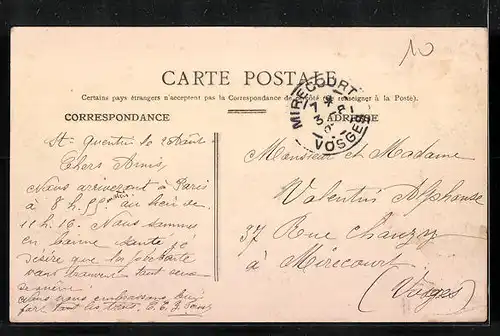 10
CARTE POSTALE
Certains pays étrangers n'acceptent pas la Correspondance de ce côté (se renseigner à la Poste).
CORRESPONDANCE
ADRESSE
MIRECOURT
VOSGES
St Quentin le
Chers Amis
Nous arriverons à Paris
à 8 h. 55 au lieu de
11 h. 16. Nous sommes
en bonne santé je
désire que la présente
vous trouve tout
de même
Nous vous embrassons bien
fort tout les trois.
Monsieur et Madame
Valentin Alphonse
37 Rue Chanzy
à Mirecourt
(Vosges)